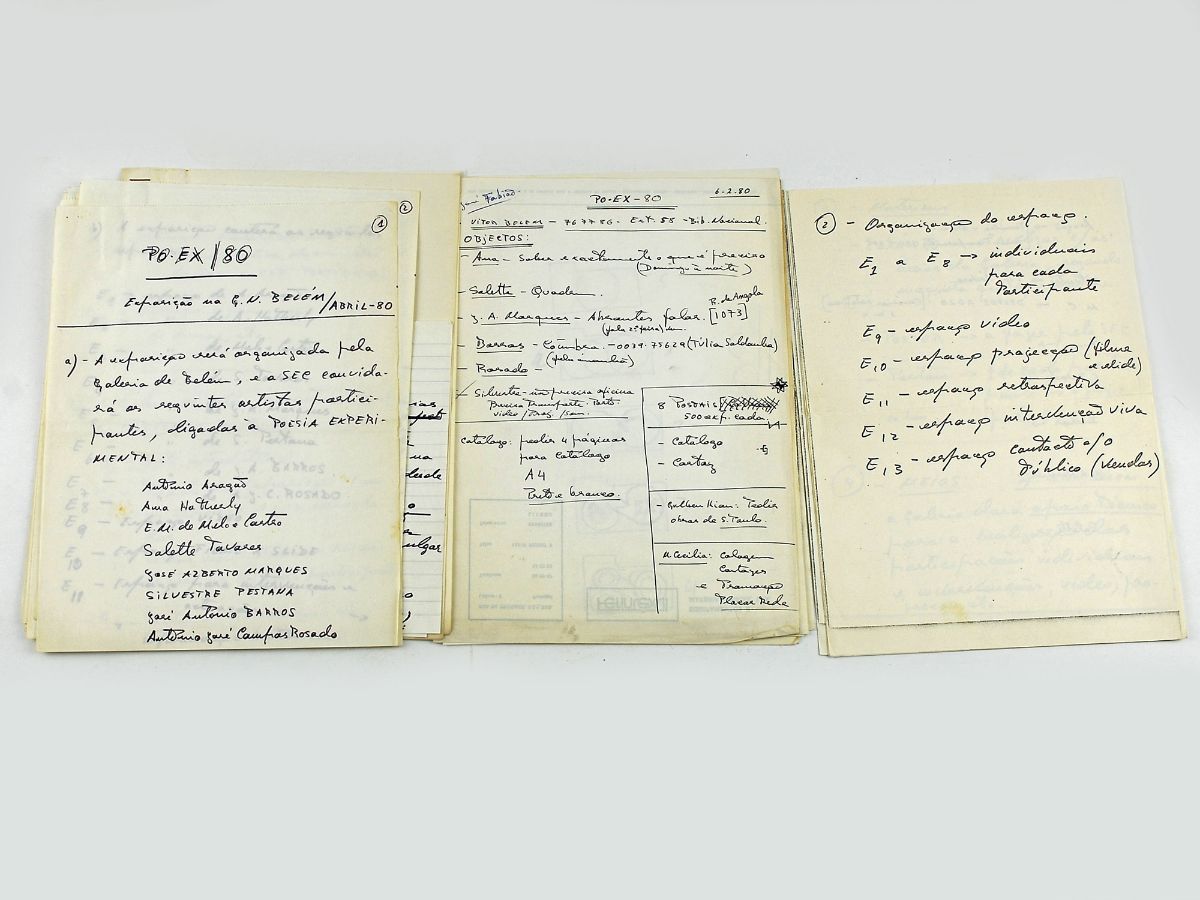 1
PO.EX/80
Exposição na G.N. BELÉM/ABRIL-80
a) - A exposição será organizada pela
Galeria de Belém, e a SEC convida-
rá os seguintes artistas partici-
pantes, ligados à POESIA EXPERI-
MENTAL:
António Aragão
Ana Hatherly
E.M. de Melo e Castro
Salette Tavares
JOSÉ ALBERTO MARQUES
SILVESTRE PESTANA
José António BARROS
António José Campos Rosado
2
José Fabião
6-2-80
PO-EX-80
VITOR BELÉM - 767786 - Ext. 58 - Bib. Nacional.
OBJECTOS:
- Ana - Saber exactamente o que é preciso
(Domingo à noite)
- Salette - Quadem.
- J. A. Marques - Abrantes falar. [1073]
R. de Angola
- Barros - Coimbra - 0039.75629 (Túlia Saldanha)
(pela manhã)
- Rosado -
- Silvestre - não precisa oficina
Busca Transporte. Porto
video
Catálogo: pedir 4 páginas
para catálogo
A4
Preto e branco.
8 POSTAIS
500 exp. cada
- Catálogo
- Cartaz
Pedir
obras de S. Paulo.
M. Cecília: Colagem
Cartazes
e Promoção
Placar Rede
2 - Organização do espaço.
E1 a E8 → individuais
para cada
Participante
E9 - espaço vídeo
E10 - espaço projecção (filme
e slide)
E11 - espaço retrospectiva
E12 - espaço intervenção viva
E13 - espaço contacto c/o
Público (vendas)